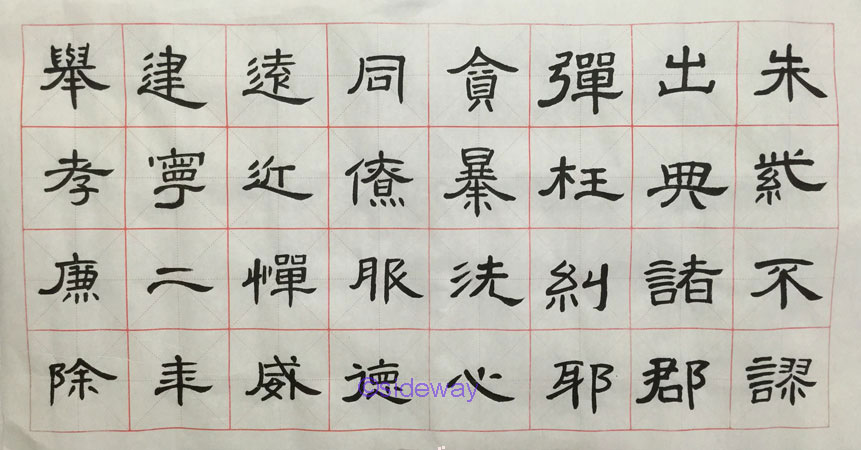 朱紫不謬
出典諸郡
彈枉糾耶
貪暴洗心
同僚服德
遠近憚威
建寧二年
舉孝廉除
©sideway